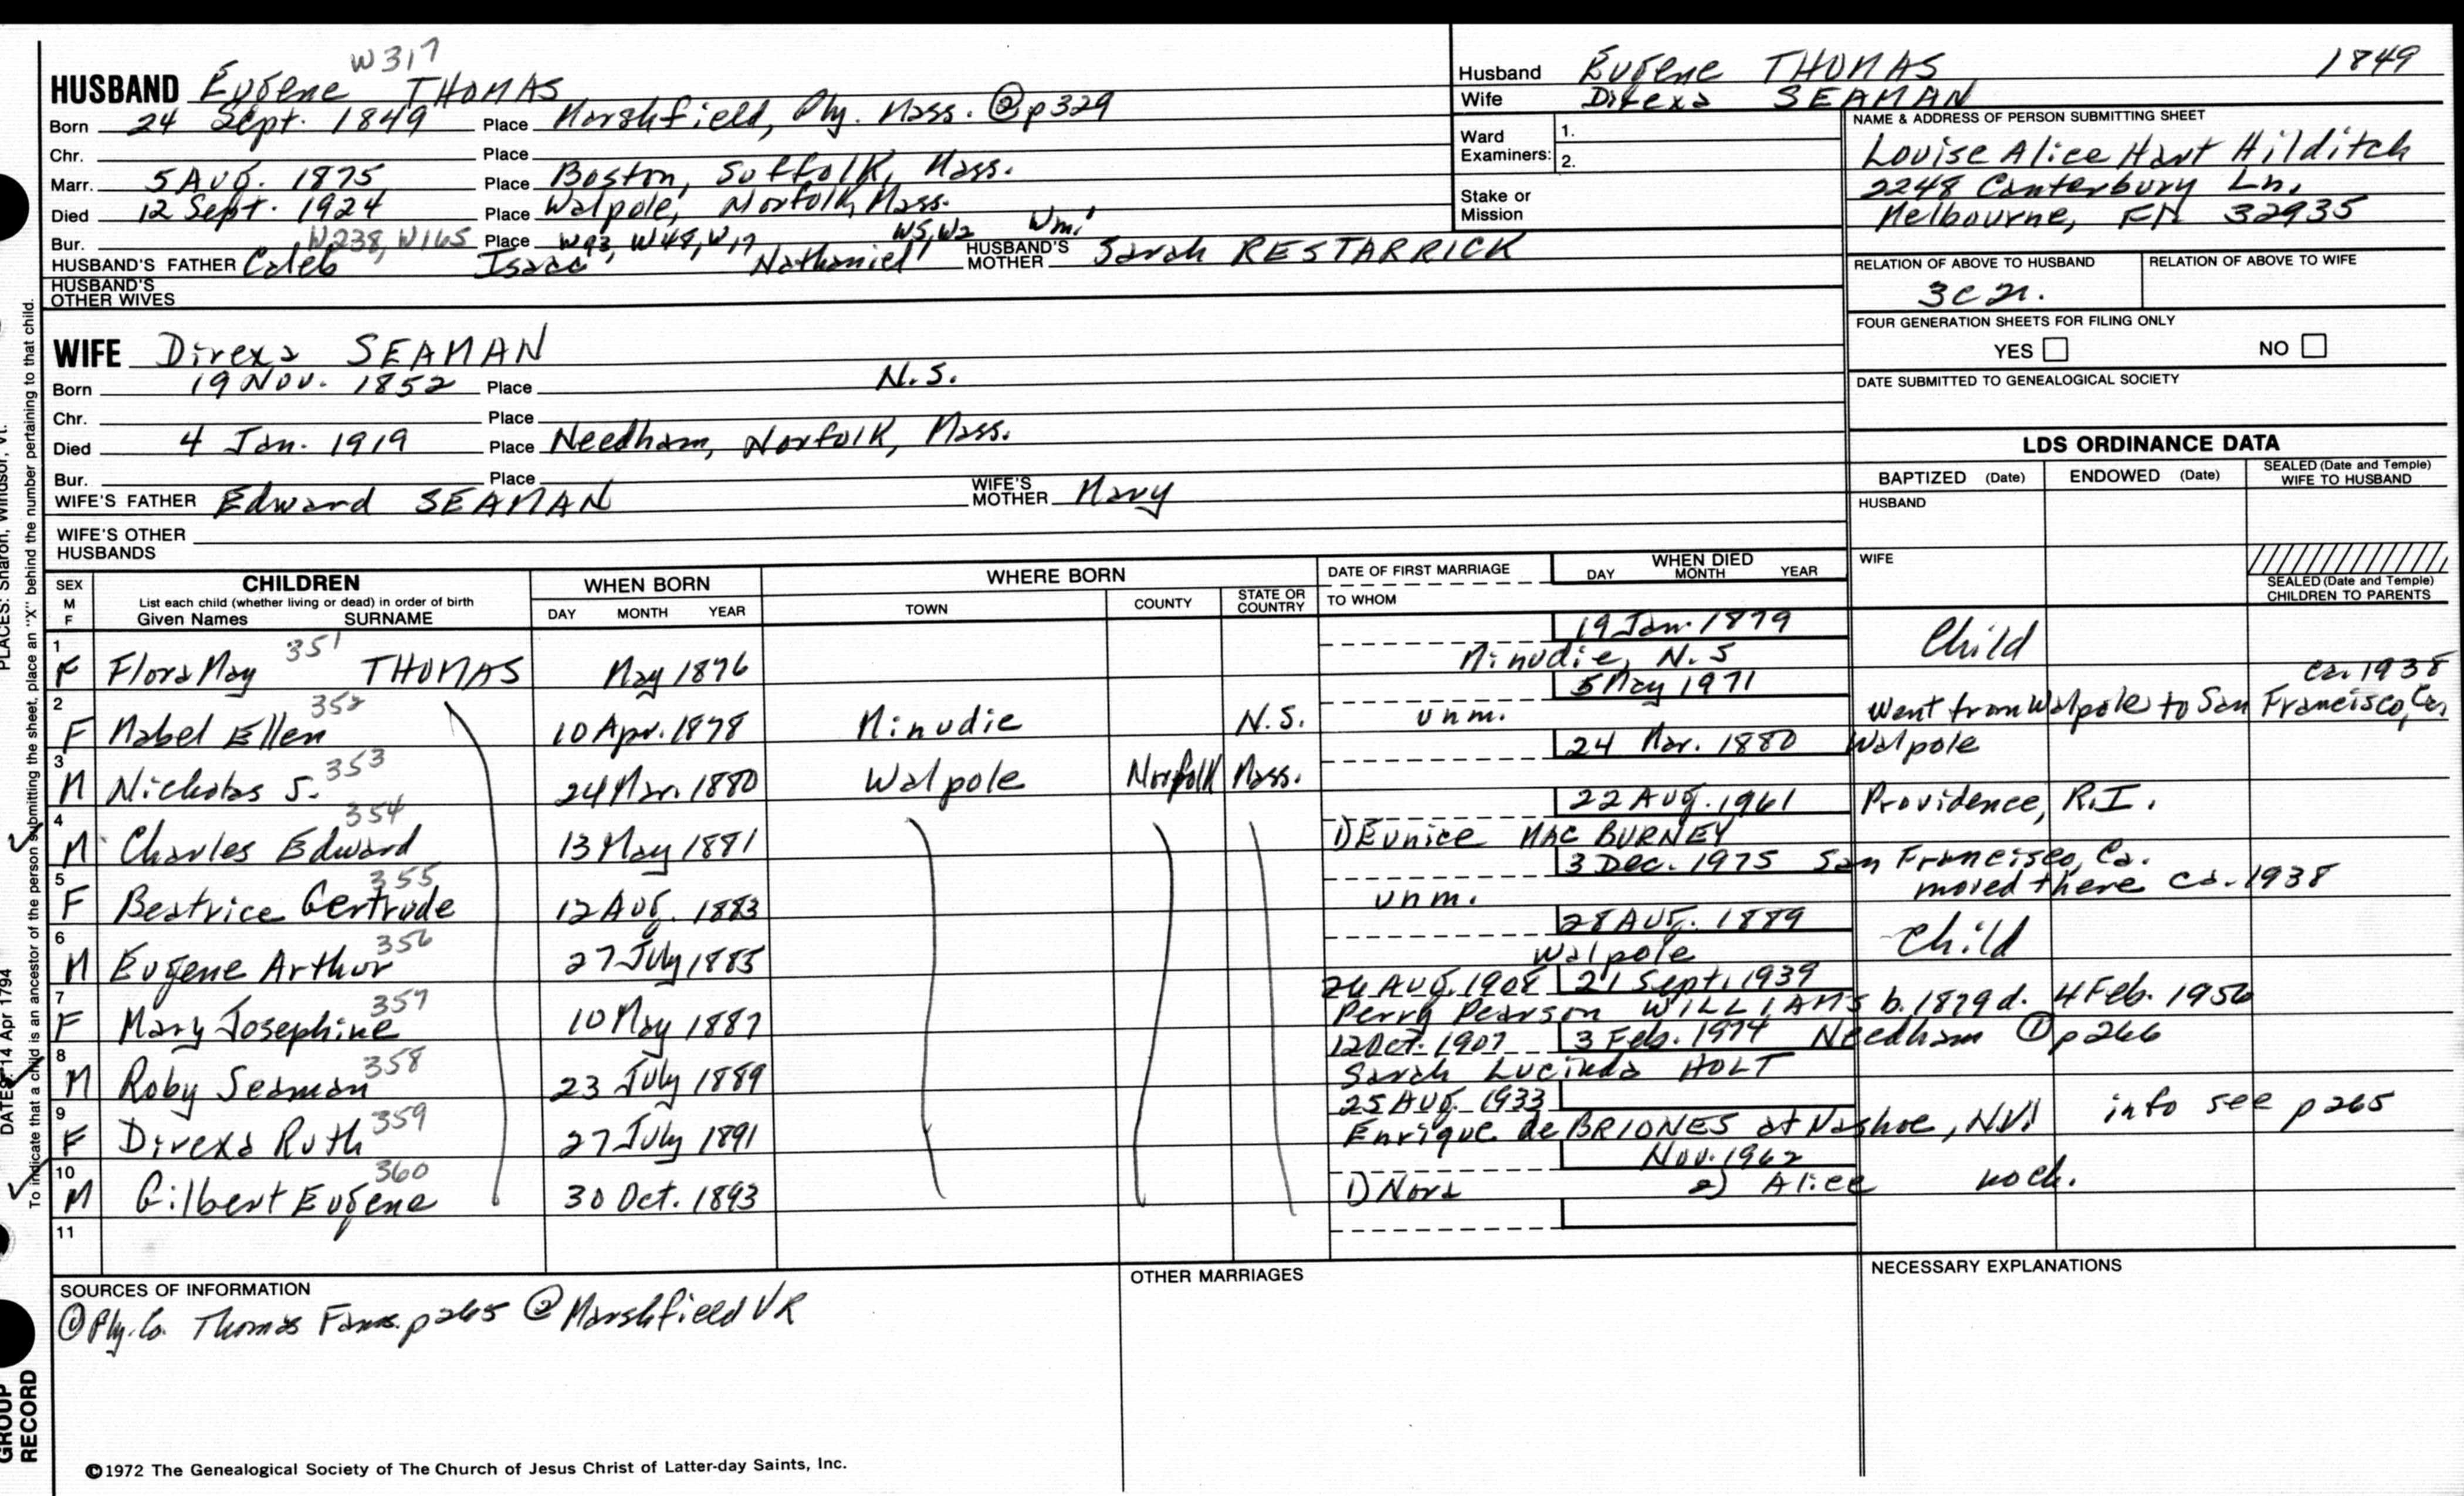 W317
HUSBAND Eugene THOMAS
Born 24 Sept. 1849 Place Marshfield, Ply. Mass. ② p329
Chr. Place
Marr. 5 Aug. 1875 Place Boston, Suffolk, Mass.
Died 12 Sept. 1924 Place Walpole, Norfolk, Mass.
Bur. Place
W238, W165 W93, W48, W17 W5, W2 Wm.
HUSBAND'S FATHER Caleb Isaac Nathaniel HUSBAND'S MOTHER Sarah RESTARRICK
HUSBAND'S OTHER WIVES
Husband Eugene THOMAS 1849
Wife Direxa SEAMAN
Ward Examiners: 1.
2.
Stake or Mission
NAME & ADDRESS OF PERSON SUBMITTING SHEET
Louise Alice Hart Hilditch
2248 Canterbury Ln.
Melbourne, FA 32935
RELATION OF ABOVE TO HUSBAND RELATION OF ABOVE TO WIFE
3c2r.
FOUR GENERATION SHEETS FOR FILING ONLY
YES NO
DATE SUBMITTED TO GENEALOGICAL SOCIETY
WIFE Direxa SEAMAN
Born 19 Nov. 1852 Place N.S.
Chr. Place
Died 4 Jan. 1919 Place Needham, Norfolk, Mass.
Bur. Place
WIFE'S FATHER Edward SEAMAN WIFE'S MOTHER Mary
WIFE'S OTHER HUSBANDS
LDS ORDINANCE DATA
BAPTIZED (Date) ENDOWED (Date) SEALED (Date and Temple) WIFE TO HUSBAND
HUSBAND
WIFE
SEALED (Date and Temple) CHILDREN TO PARENTS
SEX M F CHILDREN WHEN BORN WHERE BORN DATE OF FIRST MARRIAGE WHEN DIED
List each child (whether living or dead) in order of birth
Given Names SURNAME DAY MONTH YEAR TOWN COUNTY STATE OR COUNTRY TO WHOM DAY MONTH YEAR
1 351 19 Jan. 1879 Child
F Flora May THOMAS May 1876 Minudie, N.S
2 352 5 May 1971 ca. 1938
F Mabel Ellen 10 Apr. 1878 Minudie N.S. unm. Went from Walpole to San Francisco, Ca.
3 353 24 Mar. 1880 Walpole
M Nicholas S. 24 Mar. 1880 Walpole Norfolk Mass.
4 354 22 Aug. 1961 Providence, R.I.
M Charles Edward 13 May 1881 1) Eunice MAC BURNEY
5 355 3 Dec. 1975 San Francisco, Ca.
moved there ca. 1938
F Beatrice Gertrude 12 Aug. 1883 unm.
6 356 28 Aug. 1889 Child
M Eugene Arthur 27 July 1885 Walpole
7 357 26 Aug. 1908 21 Sept. 1939
F Mary Josephine 10 May 1887 Perry Pearson WILLIAMS b. 1879 d. 4 Feb. 1956
8 358 12 Oct. 1907 3 Feb. 1974 Needham ① p266
M Roby Seaman 23 July 1889 Sarah Lucinda HOLT
9 359 25 Aug. 1933
F Direxa Ruth 27 July 1891 Enrique de BRIONES at Washoe, NV! info see p265
10 360 Nov. 1962
M Gilbert Eugene 30 Oct. 1893 1) Nora 2) Alice noch.
11
SOURCES OF INFORMATION OTHER MARRIAGES NECESSARY EXPLANATIONS
① Ply. Co. Thomas Fams. p265 ② Marshfield VR
©1972 The Genealogical Society of The Church of Jesus Christ of Latter-day Saints, Inc.
PLACES: Sharon, Windsor, Vt.
To indicate that a child is an ancestor of the person submitting the sheet, place an "X" behind the number pertaining to that child.
DATES: 14 Apr 1794
GROUP
RECORD